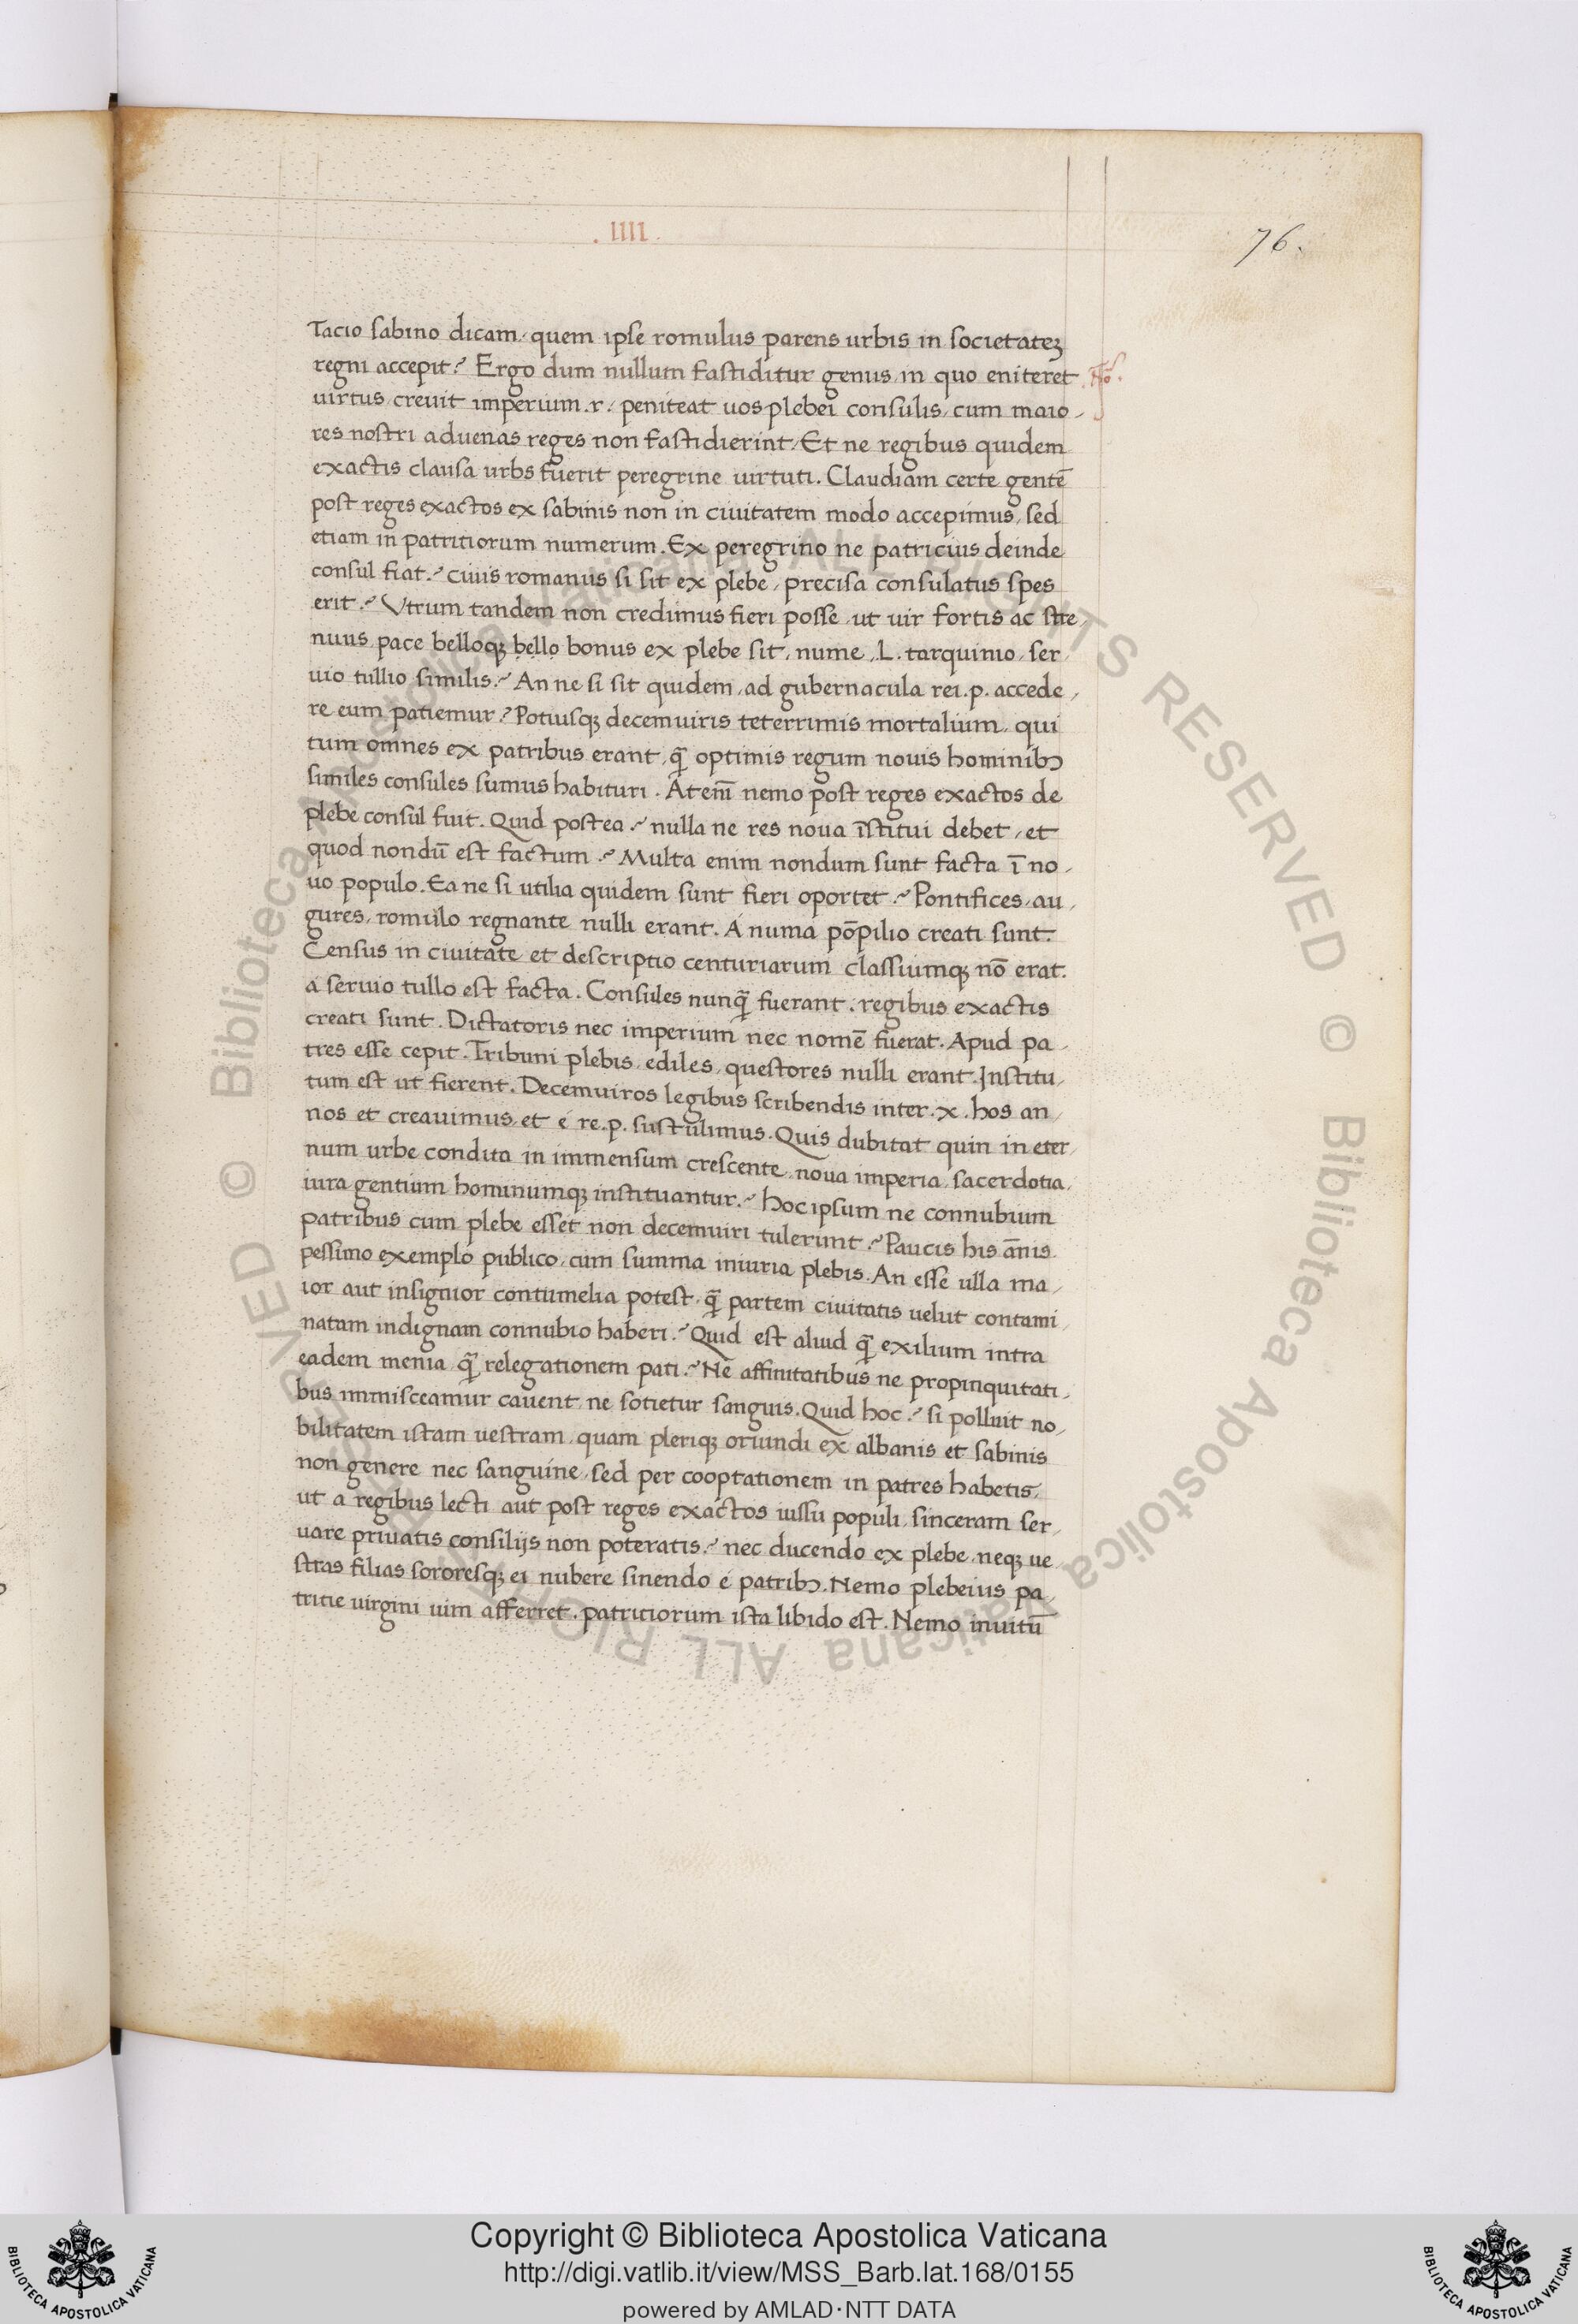 . IIII .
76.
Tacio sabino dicam, quem ipse romulus parens urbis in societatez
regni accepit? Ergo dum nullum fastiditur genus, in quo eniteret
uirtus, creuit imperium .r. peniteat uos plebei consulis, cum maio,
res nostri aduenas reges non fastidierint, Et ne regibus quidem
exactis clausa urbs fuerit peregrine uirtuti. Claudiam certe gentē
post reges exactos ex sabinis non in ciuitatem modo accepimus, sed
etiam in patritiorum numerum. Ex peregrino ne patricius deinde
consul fiat? ciuis romanus si sit ex plebe, precisa consulatus spes
erit? Vtrum tandem non credimus fieri posse, ut uir fortis ac stre,
nuus, pace belloqȝ bello bonus ex plebe sit, nume, L. tarquinio, ser,
uio tullio similis? An ne si sit quidem, ad gubernacula rei .p. accede,
re eum patiemur? Potiusqȝ decemuiris teterrimis mortalium, qui
tum omnes ex patribus erant, q̄ optimis regum nouis hominibꝫ
similes consules sumus habituri. At enī nemo post reges exactos de
plebe consul fuit. Quid postea? nulla ne res noua īstitui debet, et
quod nondū est factum? Multa enim nondum sunt facta ī no,
uo populo. Ea ne si utilia quidem sunt fieri oportet? Pontifices, au,
gures, romulo regnante nulli erant. A numa pōpilio creati sunt.
Census in ciuitate et descriptio centuriarum classiumqȝ nō erat.
a seruio tullo est facta. Consules nunq̄ fuerant. regibus exactis
creati sunt. Dictatoris nec imperium nec nomē fuerat. Apud pa,
tres esse cepit. Tribuni plebis, ediles, questores nulli erant. Institu,
tum est ut fierent. Decemuiros legibus scribendis inter .x. hos an,
nos et creauimus, et é re .p. sustulimus. Quis dubitat quin in eter,
num urbe condita in immensum crescente, noua imperia, sacerdotia,
iura gentium hominumqȝ instituantur? Hoc ipsum ne connubium
patribus cum plebe esset non decemuiri tulerunt? Paucis his ānis
pessimo exemplo publico, cum summa iniuria plebis. An esse ulla ma,
ior aut insignior contumelia potest, q̄ partem ciuitatis uelut contami,
natam indignam connubio haberi? Quid est aliud q̄ exilium intra
eadem menia, q̄ relegationem pati? Ne affinitatibus ne propinquitati,
bus immisceamur cauent, ne sotietur sanguis. Quid hoc? si polluit no,
bilitatem istam uestram, quam pleriqȝ oriundi ex albanis et sabinis
non genere nec sanguine, sed per cooptationem in patres habetis,
ut a regibus lecti aut post reges exactos iussu populi, sinceram ser,
uare priuatis consilijs non poteratis? nec ducendo ex plebe, neqȝ ue,
stras filias sororesqȝ ei nubere sinendo é patribꝫ. Nemo plebeius pa,
tritie uirgini uim afferret. patritiorum ista libido est. Nemo inuitū
Copyright © Biblioteca Apostolica Vaticana
http://digi.vatlib.it/view/MSS_Barb.lat.168/0155
powered by AMLAD·NTT DATA
BIBLIOTECA APOSTOLICA VATICANA
BIBLIOTECA APOSTOLICA VATICANA